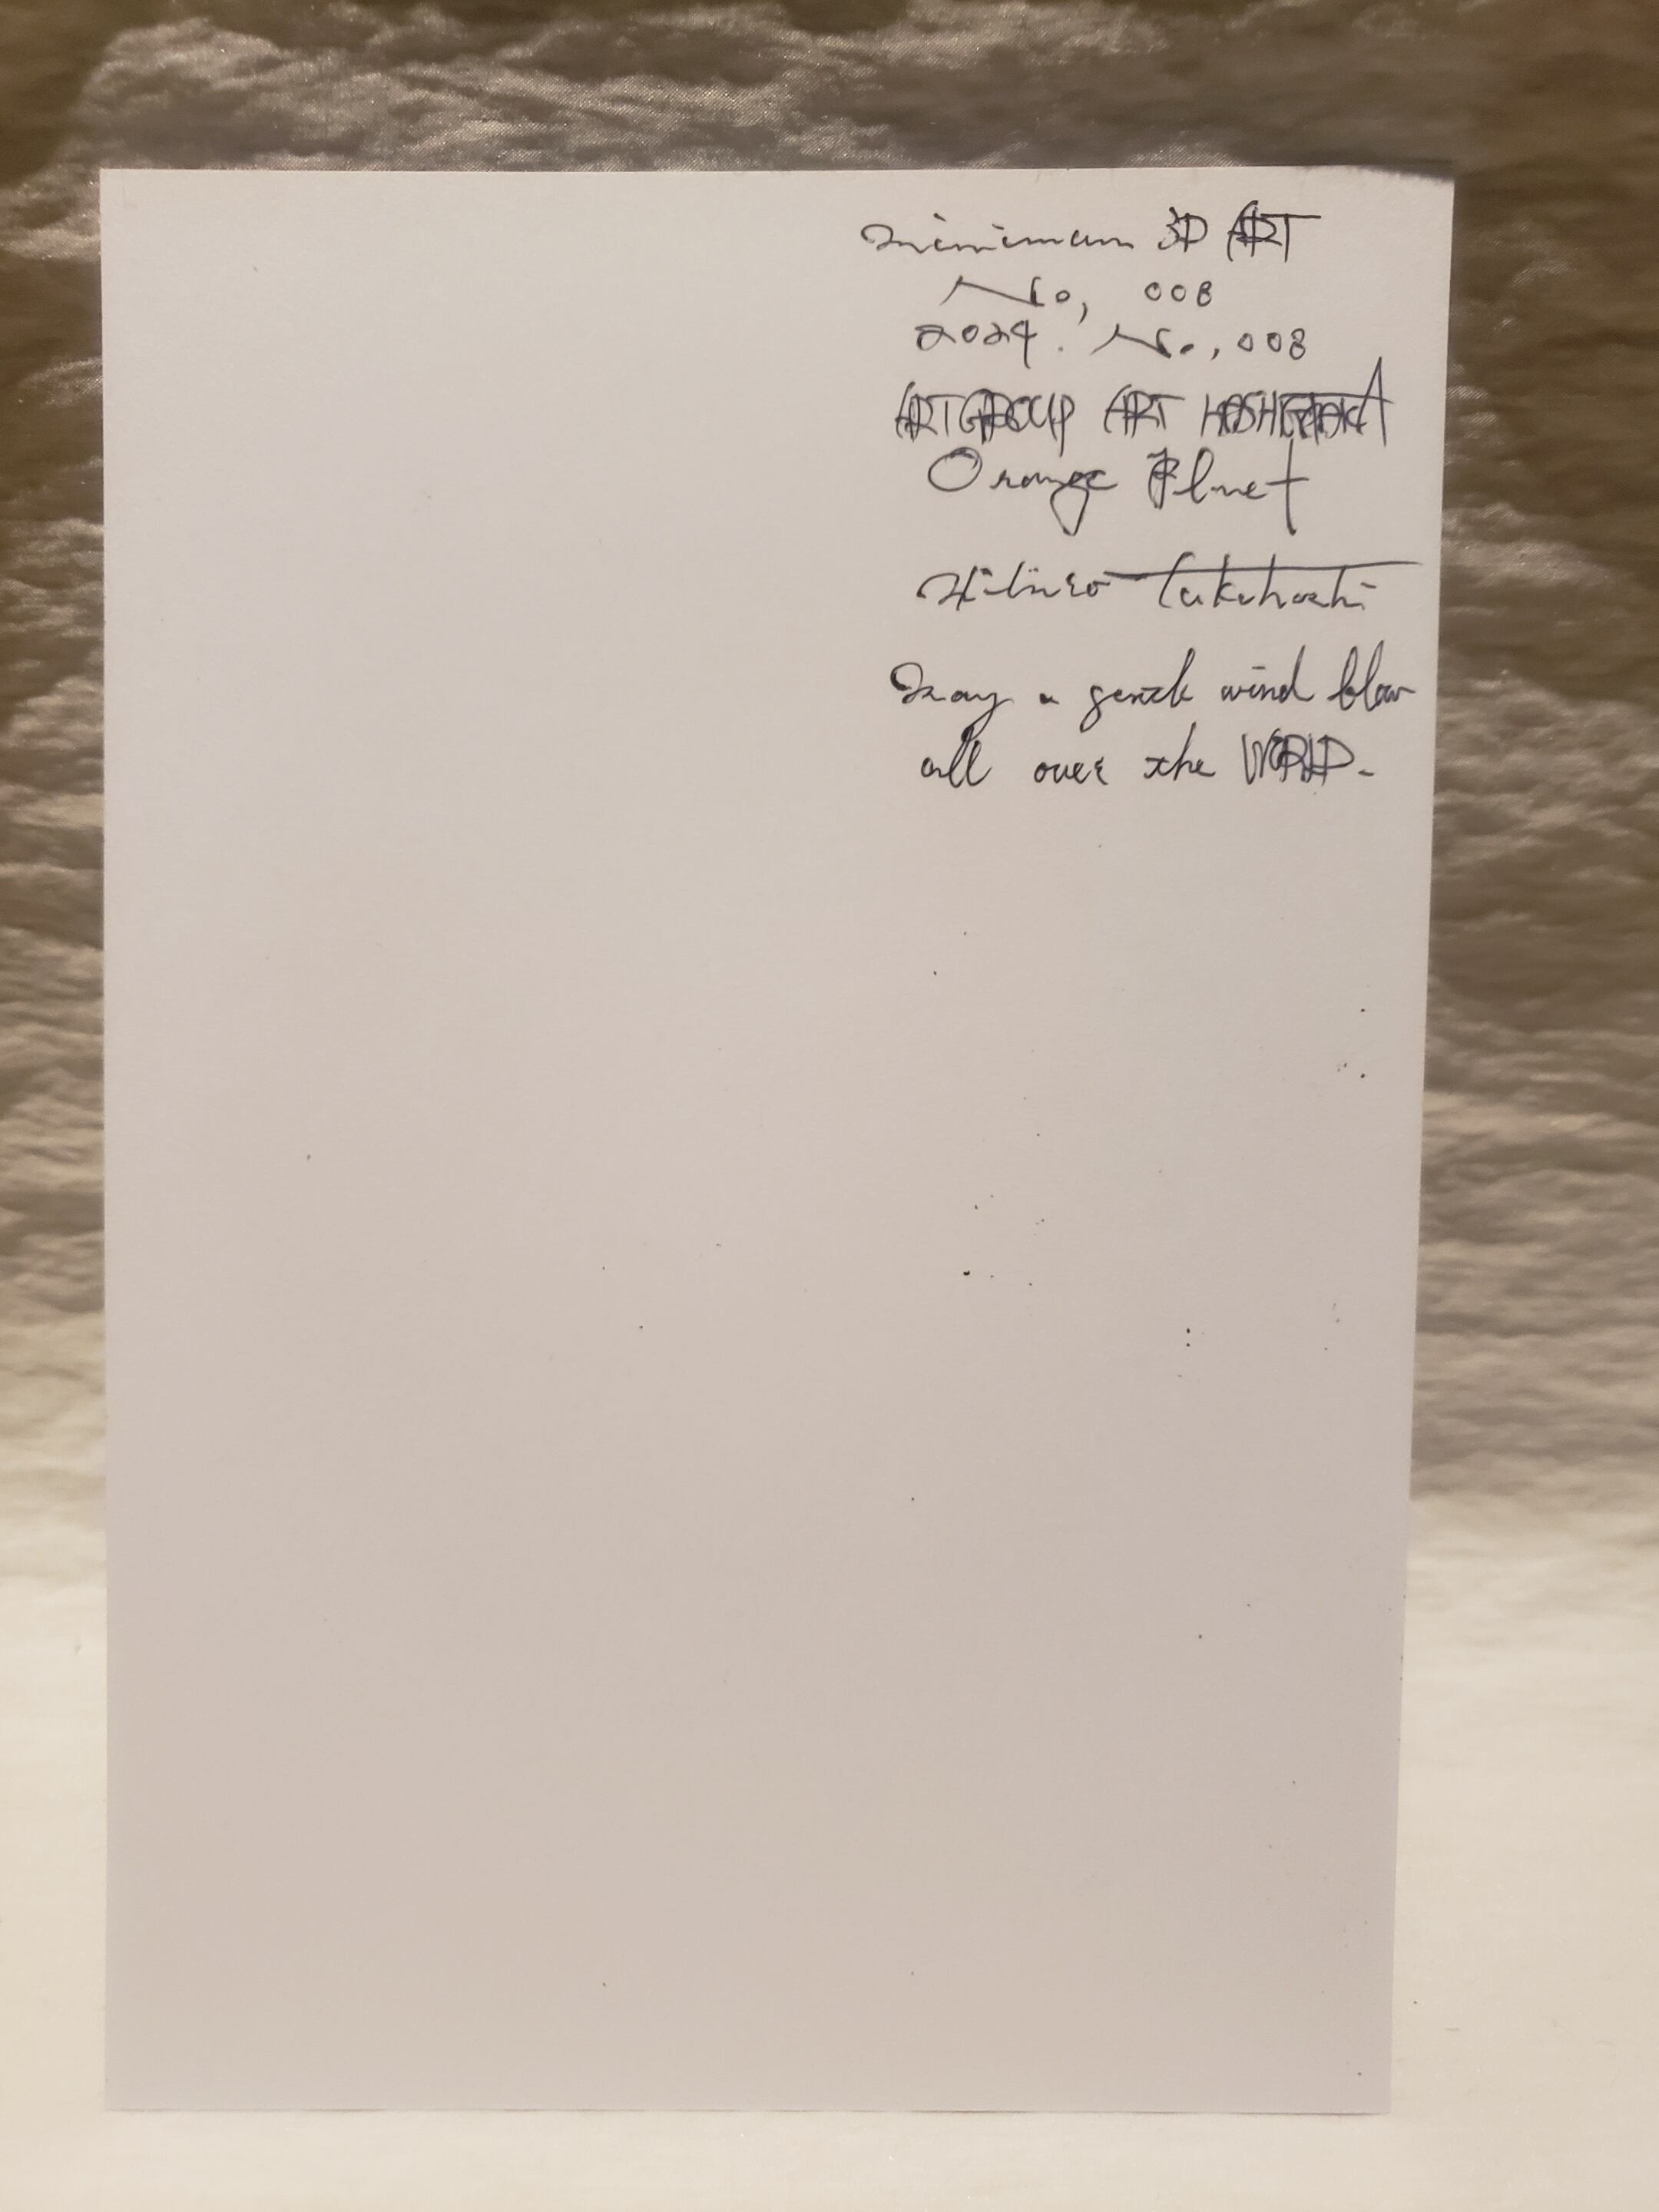 Minimum 3D ART
No, 008
2024. No, 008
ARTGROUP ART
Orange Plnet
Takahashi
May a gentle wind blow
all over the WORLD.